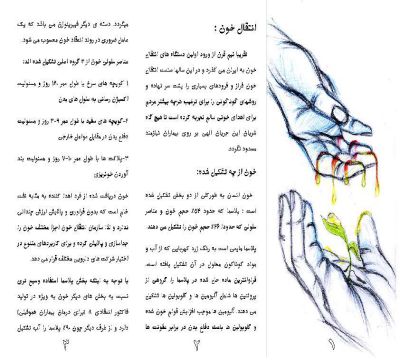 انتقال خون :
تقریبا نیم قرن از ورود اولین دستگاه های انتقال
خون به ایران می گذرد و در این سالها صنعت انتقال
خون فراز و فرودهای بسیاری را پشت سر نهاده و
روشهای گوناگونی را برای ترغیب هرچه بیشتر مردم
برای اهدای خونی سالم تجربه کرده است تا هیچ گاه
شریان این جریان الهی بر روی بیماران نیازمند
مسدود نگردد.
خون از چه تشکیل شده:
خون انسان به طورکلی از دو بخش تشکیل شده
است : پلاسما که حدود ۵۴٪ حجم خون و عناصر
سلولی که حدود ۴۶٪ حجم خون را تشکیل می دهند.
پلاسما مایعی است به رنگ زرد کهربایی که از آب و
مواد گوناگون محلول در آن تشکیل یافته است.
فراوانترین ماده حل شده در پلاسما را گروهی از
پروتئین ها شامل آلبومین ها و گلوبولین ها تشکیل
می دهند. آلبومین ها موجب افزایش قوام خون شده
و گلوبولین ها باعث دفاع بدن در برابر عفونت ها
۲
میگردد. دسته ی دیگر فیبرینوژن می باشد که یک
عامل ضروری در روند انعقاد خون محسوب می شود.
عناصر سلولی خون از ۳ گروه اصلی تشکیل شده اند:
۱-گویچه های سرخ با طول عمر ۱۲۰ روز و مسئولیت
اکسیژن رسانی به سلول های بدن
۲-گویچه های سفید با طول عمر ۹-۲ روز و مسئولیت
دفاع بدن در مقابل عوامل خارجی
۳-پلاکت ها با طول عمر ۱۰-۷ روز و مسئولیت بند
آوردن خونریزی
خون دریافت شده از فرد اهدا کننده به مثابه نفت
خام است که بدون فرآوری و پالایش ارزش چندانی
ندارد و لذا سازمان انتقال خون اجزا مختلف خون را
جداسازی و پالایش کرده و برای کاربردهای متنوع در
اختیار شرکت های دارویی مختلف قرار می دهد.
با توجه به اینکه بخش پلاسما استفاده وسیع تری
نسبت به بخش های دیگر خون به ویژه در تولید
فاکتور انعقادی ۸ (برای درمان بیماران هموفیلی)
دارد و از طرف دیگر چون ۹۰٪ پلاسما را آب تشکیل
۳
۱